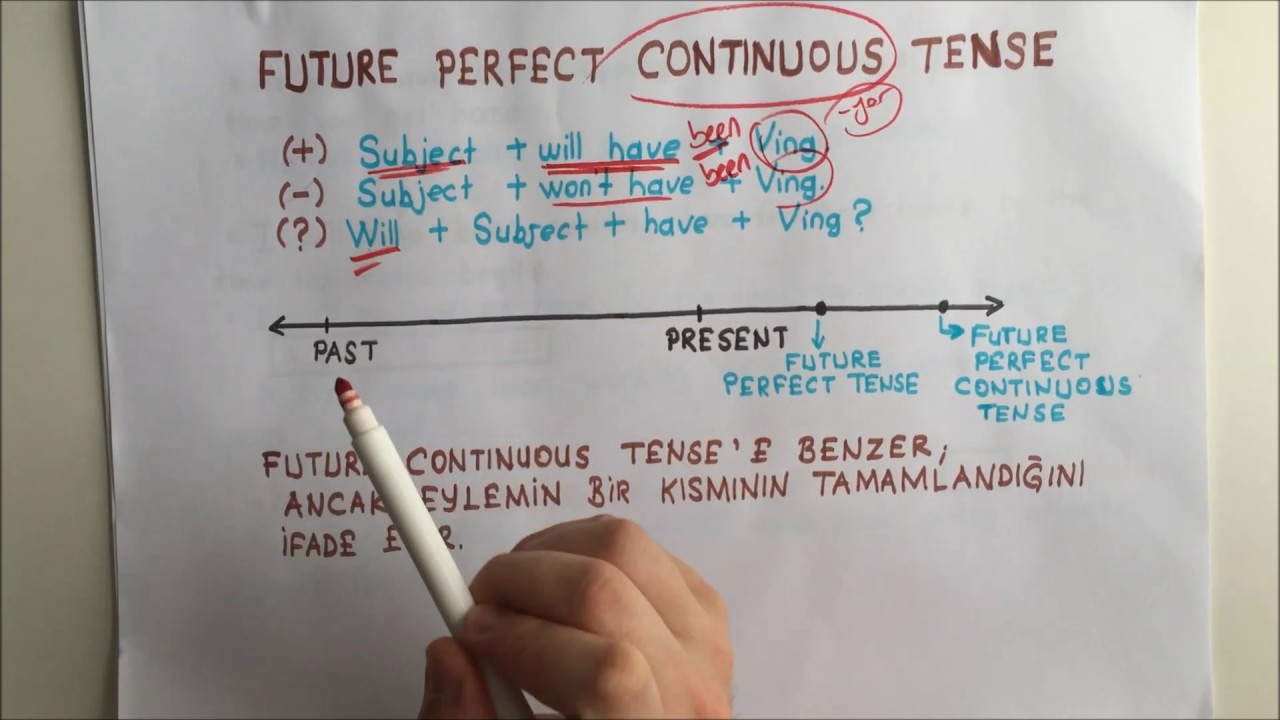 FUTURE PERFECT CONTINUOUS TENSE
-yor
(+) Subject + will have been + Ving.
(-) Subject + won't have been + Ving.
(?) Will + Subject + have + Ving?
PAST
PRESENT
FUTURE
PERFECT TENSE
FUTURE
PERFECT
CONTINUOUS
TENSE
CONTINUOUS TENSE'E BENZER;
ANCAK EYLEMİN BİR KISMININ TAMAMLANDIĞINI
İFADE